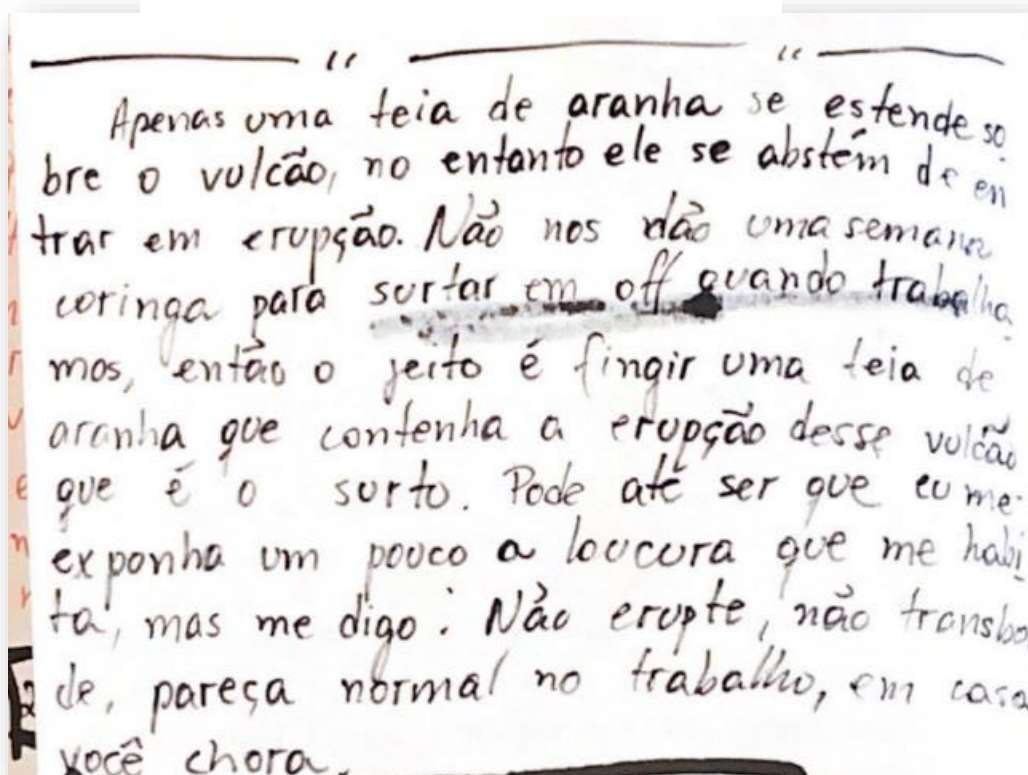 Apenas uma teia de aranha se estende so
bre o vulcão, no entanto ele se abstém de en
trar em erupção. Não nos dão uma semana
coringa para surtar em off quando trabalha
mos, então o jeito é fingir uma teia de
aranha que contenha a erupção desse vulcão
que é o surto. Pode até ser que eu me
exponha um pouco a loucura que me habi
ta, mas me digo: Não erupte, não transbor
de, pareça normal no trabalho, em casa
você chora.